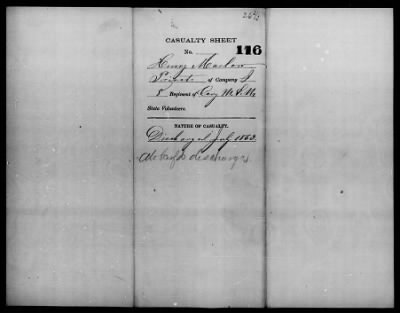 CASUALTY SHEET
No. 116
Henry
Private of Company I
8 Regiment of Cav M.S.M.
State Volunteers.
NATURE OF CASUALTY.
Discharged July 1863.
discharge